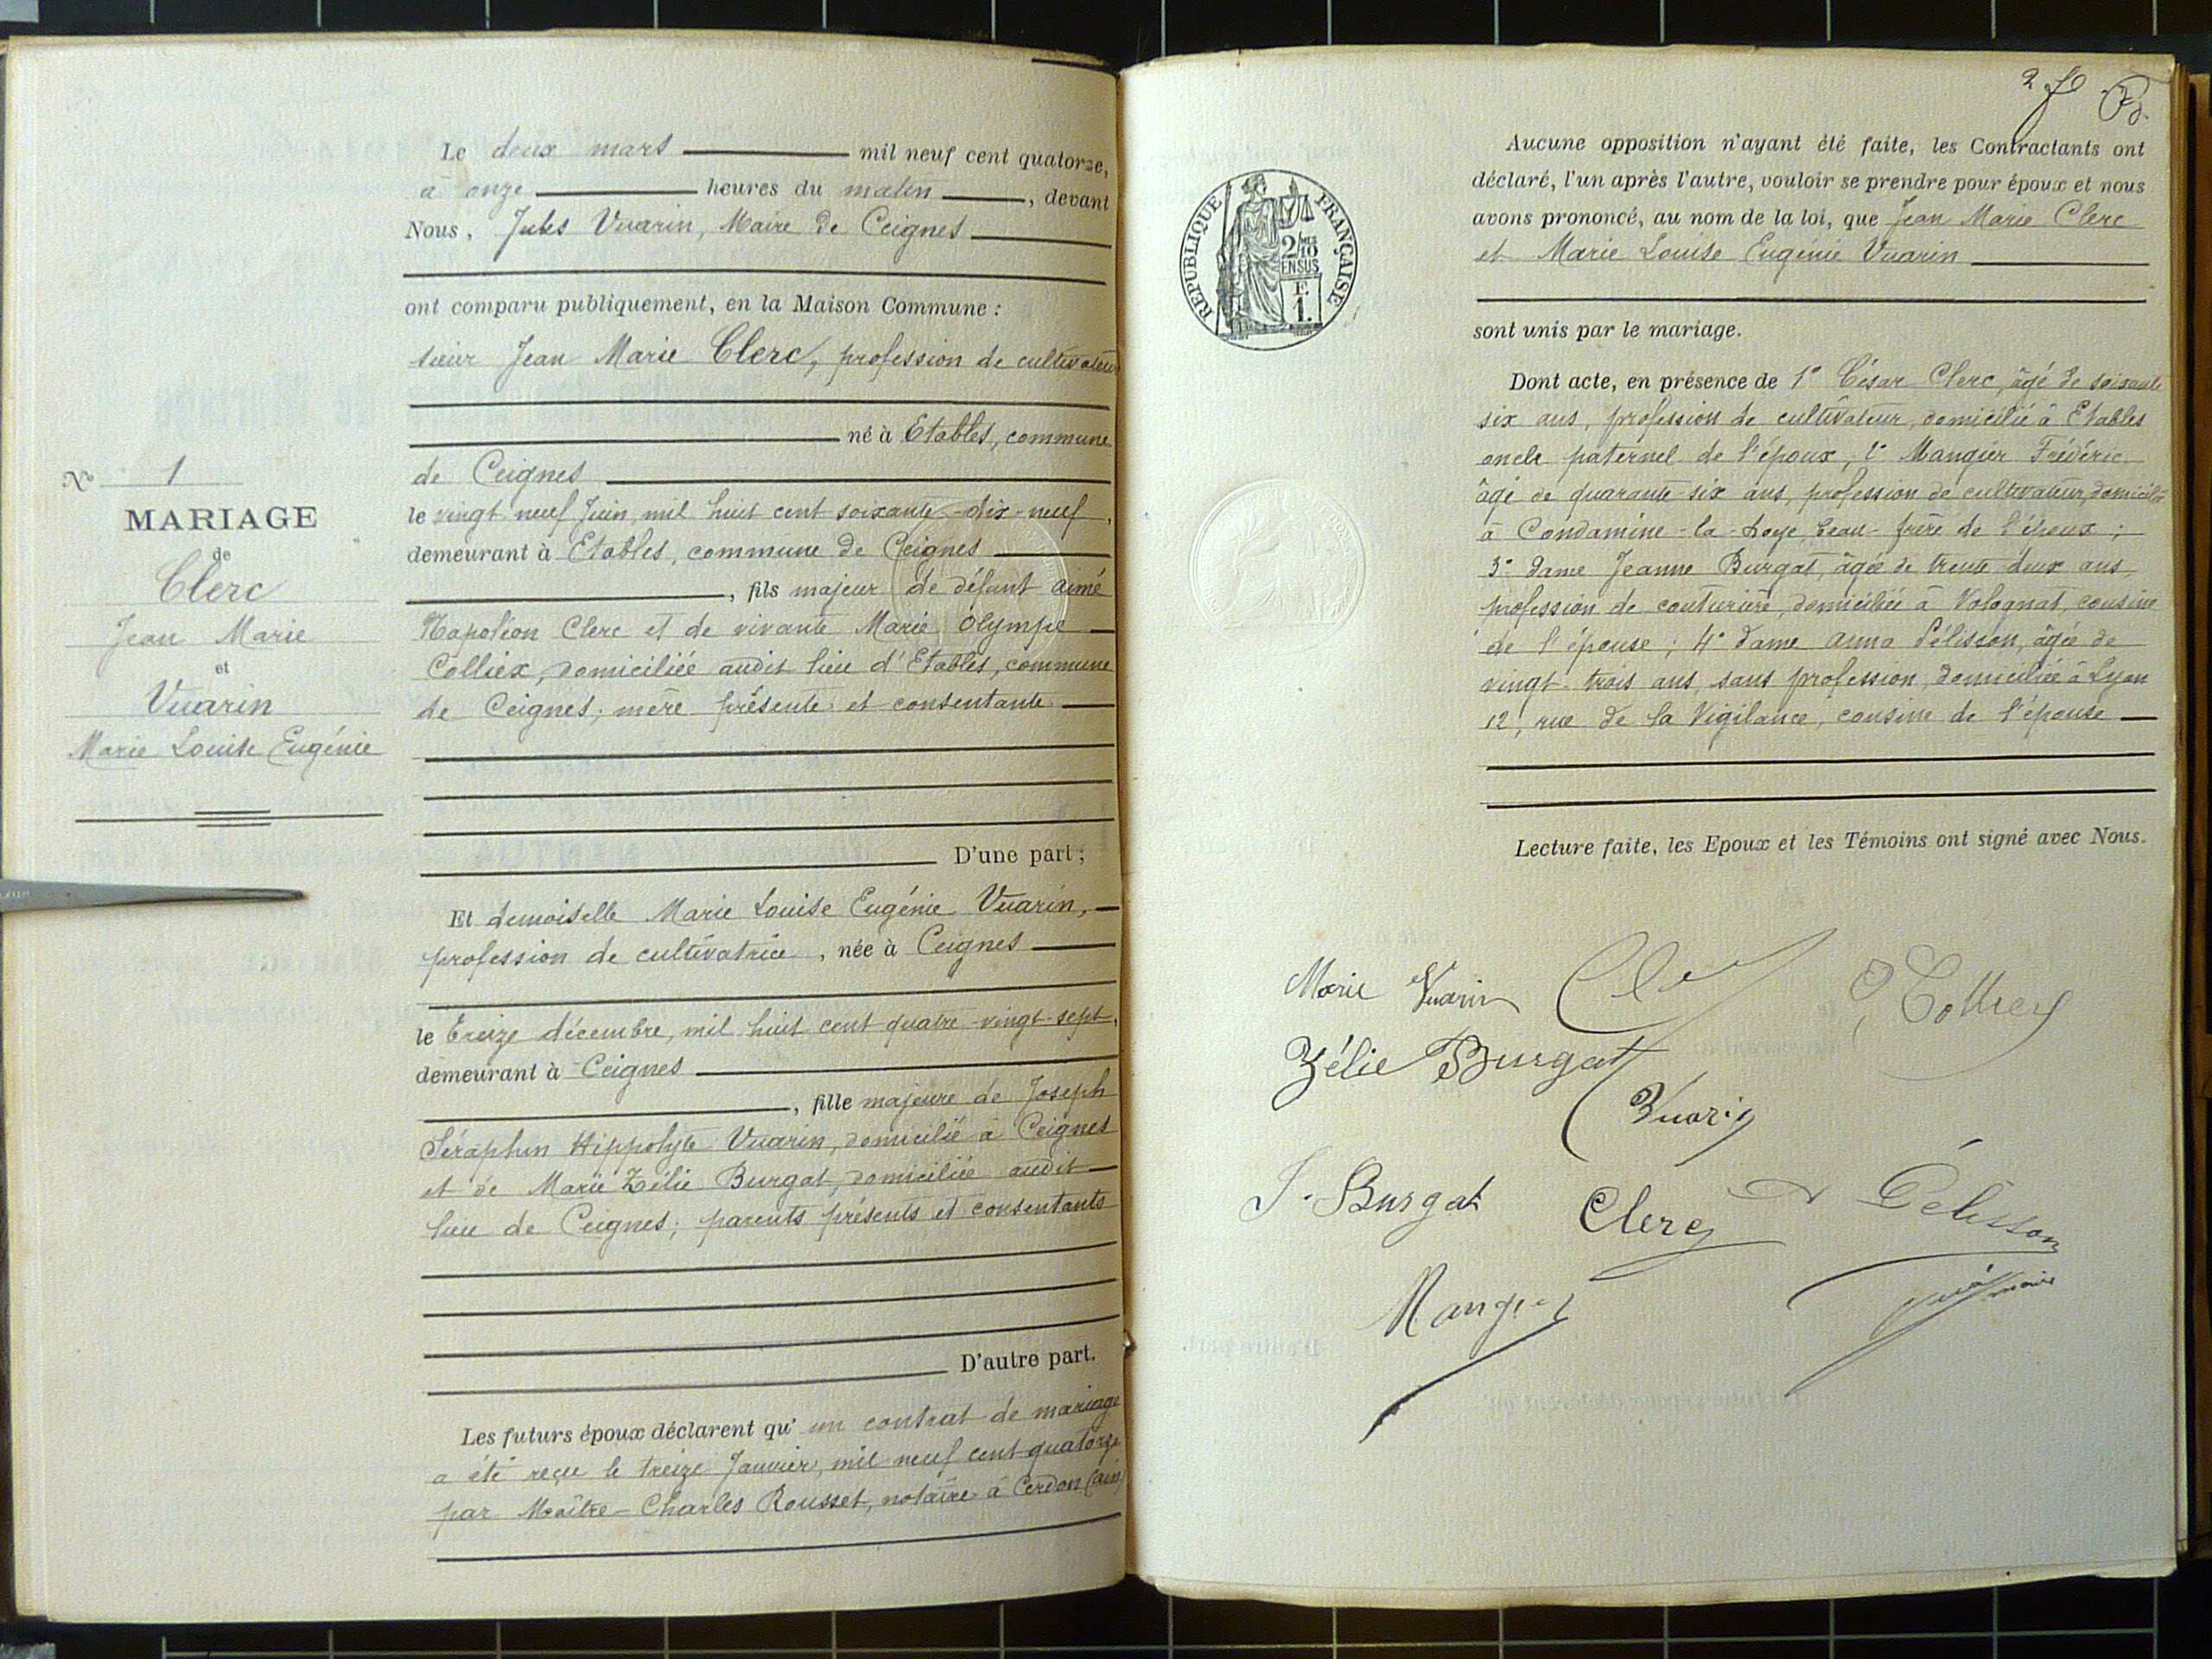 N° 1
MARIAGE
de
Clerc
Jean Marie
et
Vuarin
Marie Louise Eugénie
Le deux mars mil neuf cent quatorze,
à onze heures du matin, devant
Nous, Jules Vuarin, Maire de Ceignes
ont comparu publiquement, en la Maison Commune :
sieur Jean Marie Clerc, profession de cultivateur
né à Etables, commune
de Ceignes
le vingt neuf Juin, mil huit cent soixante-dix-neuf,
demeurant à Etables, commune de Ceignes
, fils majeur de défunt Aimé
Napoléon Clerc et de vivante Marie Olympe
Colliex, domiciliée audit lieu d'Etables, commune
de Ceignes; mère présente et consentante
D'une part ;
Et demoiselle Marie Louise Eugénie Vuarin,
profession de cultivatrice, née à Ceignes
le treize décembre, mil huit cent quatre-vingt-sept,
demeurant à Ceignes
, fille majeure de Joseph
Séraphin Hippolyte Vuarin, domicilié à Ceignes
et de Marie Zélie Burgat, domiciliée audit
lieu de Ceignes; parents présents et consentants
D'autre part.
Les futurs époux déclarent qu'un contrat de mariage
a été reçu le treize Janvier, mil neuf cent quatorze
par Maître Charles Rousset, notaire à Cerdon (Ain)
2
RÉPUBLIQUE FRANÇAISE
2/10 MES
EN SUS
F.
1.
Aucune opposition n'ayant été faite, les Contractants ont
déclaré, l'un après l'autre, vouloir se prendre pour époux et nous
avons prononcé, au nom de la loi, que Jean Marie Clerc
et Marie Louise Eugénie Vuarin
sont unis par le mariage.
Dont acte, en présence de 1° César Clerc, âgé de soixante
six ans, profession de cultivateur, domicilié à Etables
oncle paternel de l'époux; 2° Mangier Frédéric
âgé de quarante six ans, profession de cultivateur, domicilié
à Condamine-la-Doye, beau-frère de l'époux;
3° dame Jeanne Burgat, âgée de trente deux ans,
profession de couturière, domiciliée à Volognat, cousine
de l'épouse; 4° dame Anna Pélisson, âgée de
vingt-trois ans, sans profession, domiciliée à Lyon
12, rue de la Vigilance, cousine de l'épouse
Lecture faite, les Epoux et les Témoins ont signé avec Nous.
Marie Vuarin
Zélie Burgat
Vuarin
J. Burgat Clerc A Pélisson
Mangier